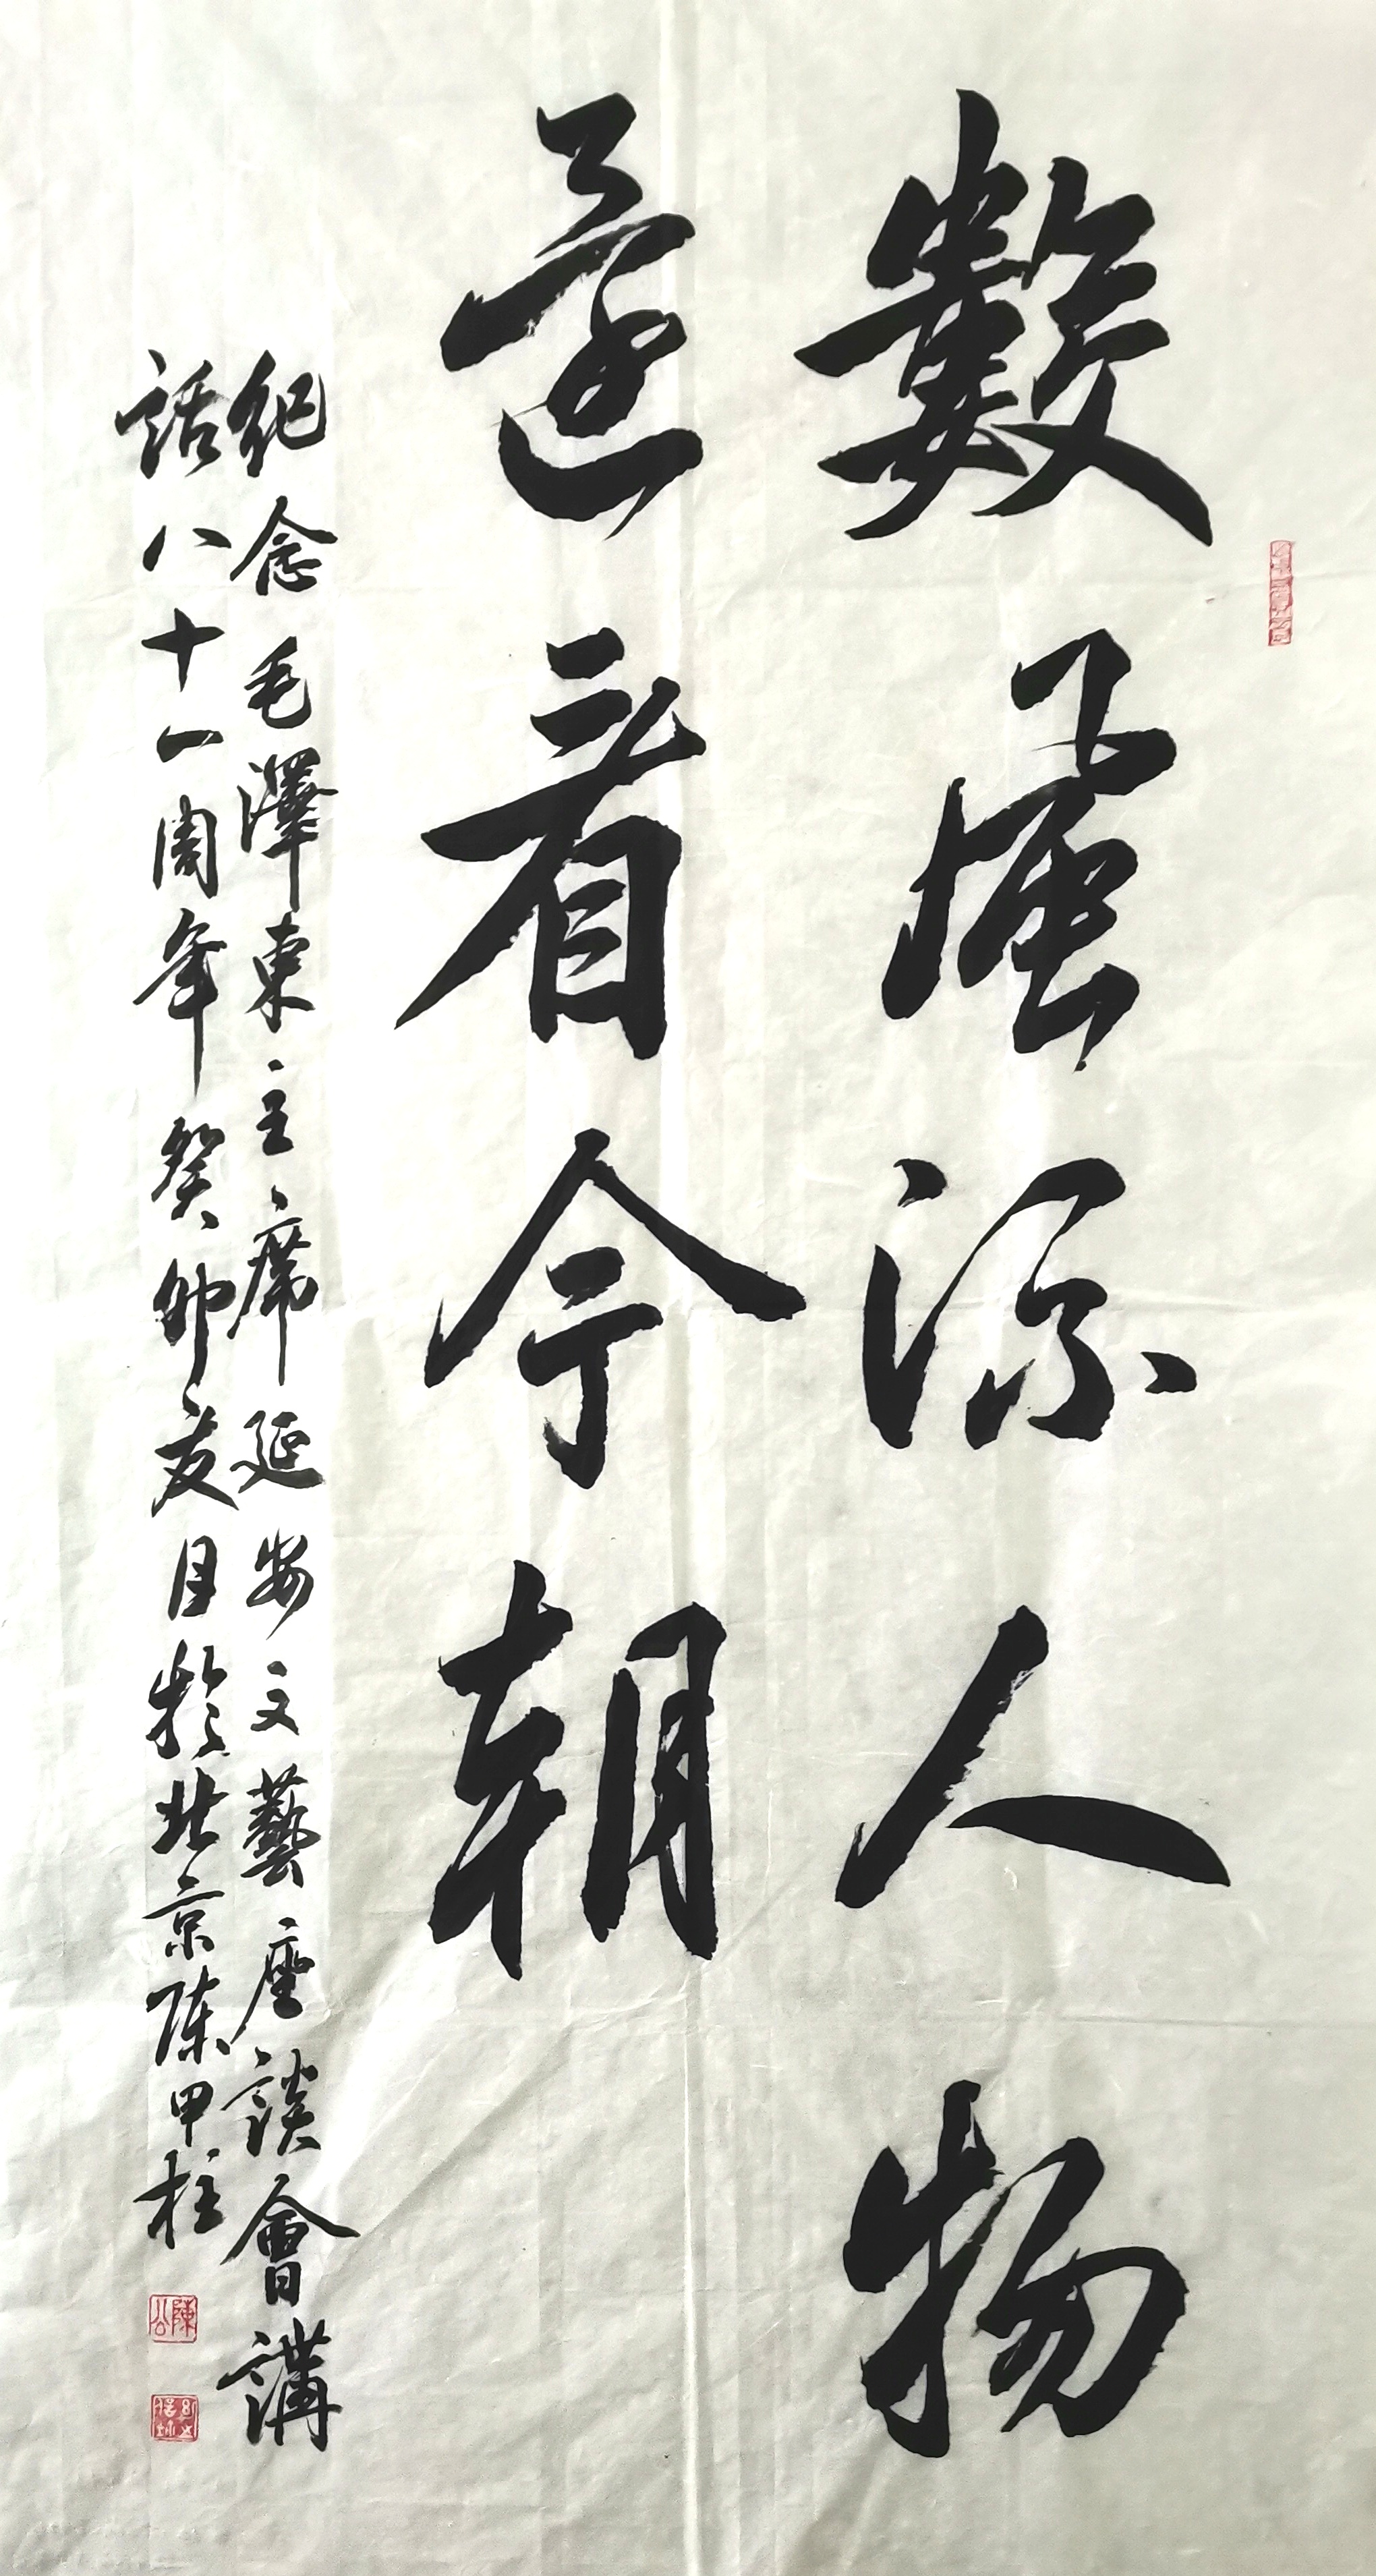 數風流人物
還看今朝
紀念毛澤東主席延安文藝座談會講
話八十一周年癸卯夏月於北京陳甲柱
陳公